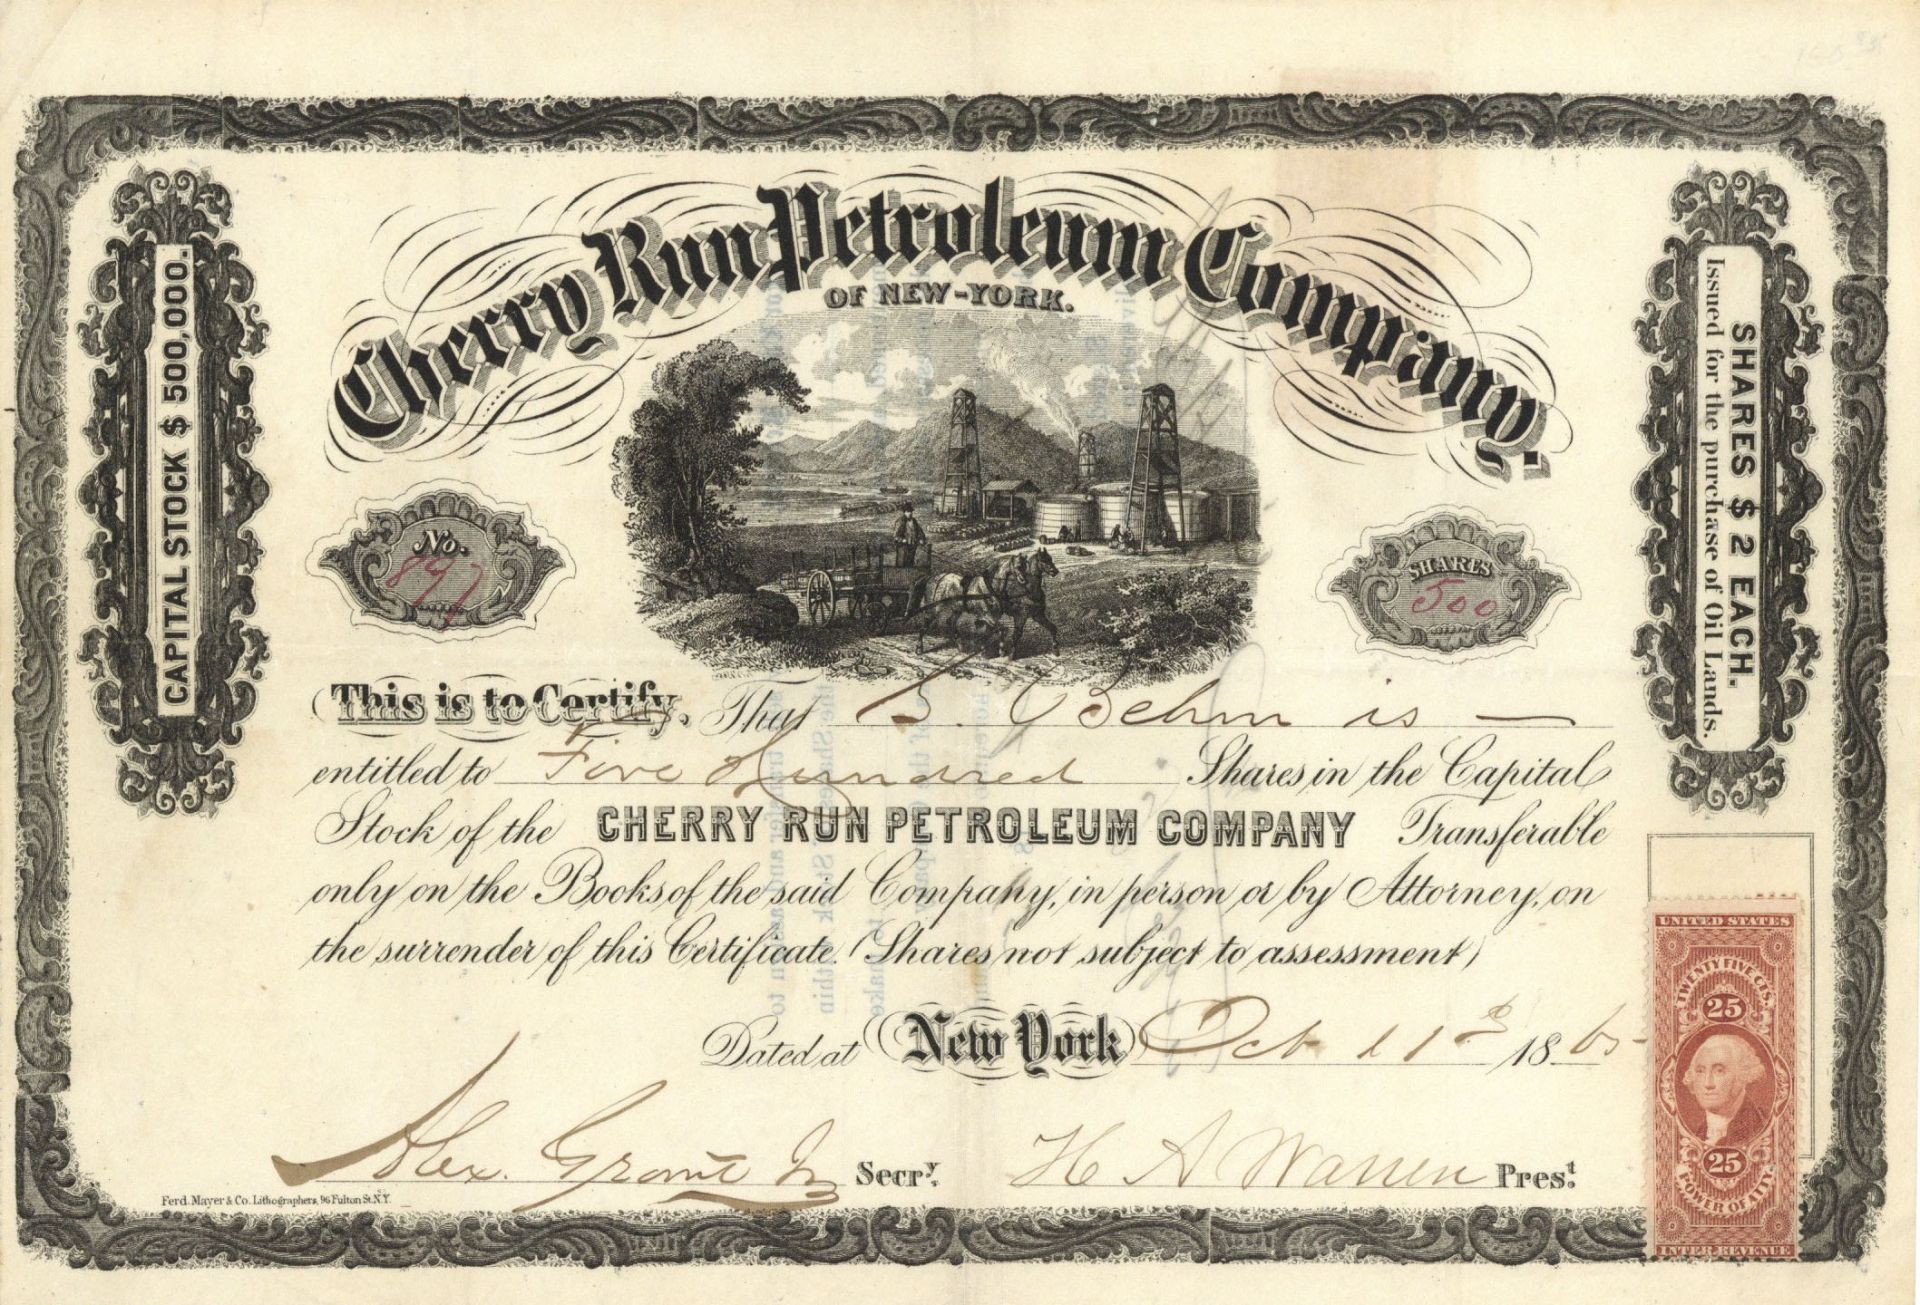 Cherry Run Petroleum Company.
OF NEW-YORK.
CAPITAL STOCK $ 500,000.
SHARES $ 2 EACH.
Issued for the purchase of Oil Lands.
No.
897
SHARES
500
This is to Certify, That B. Behm is
entitled to Five Hundred Shares in the Capital
Stock of the CHERRY RUN PETROLEUM COMPANY Transferable
only on the Books of the said Company, in person or by Attorney, on
the surrender of this Certificate. (Shares not subject to assessment)
Dated at New York Oct 11th 1865
Alex. Grant Jr Secry.
H A Warren Prest.
Ferd. Mayer & Co. Lithographers, 96 Fulton St. N.Y.
UNITED STATES
TWENTY FIVE CTS.
25
25
POWER OF AT'TY
INTER. REVENUE